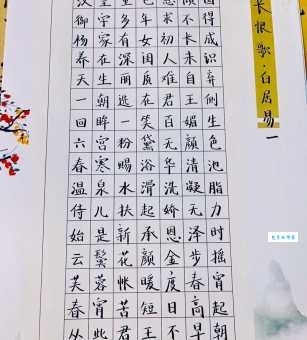 长恨歌·白居易一
御宇多年求不得
杨家有女初长成
养在深闺人未识
天生丽质难自弃
一朝选在君王侧
回眸一笑百媚生
六宫粉黛无颜色
春寒赐浴华清池
温泉水滑洗凝脂
侍儿扶起娇无力
始是新承恩泽时
云鬓花颜金步摇
芙蓉帐暖度春宵
春宵苦短日高起
从此君王不早朝